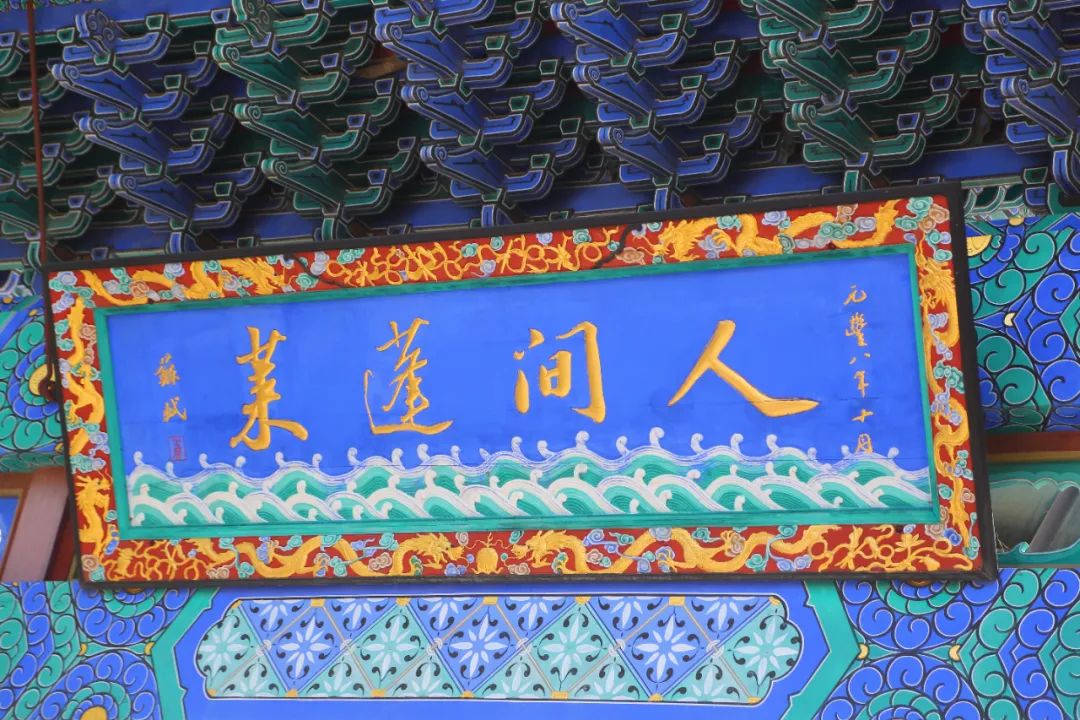 元豐八年十月
人间蓬莱
蘇軾